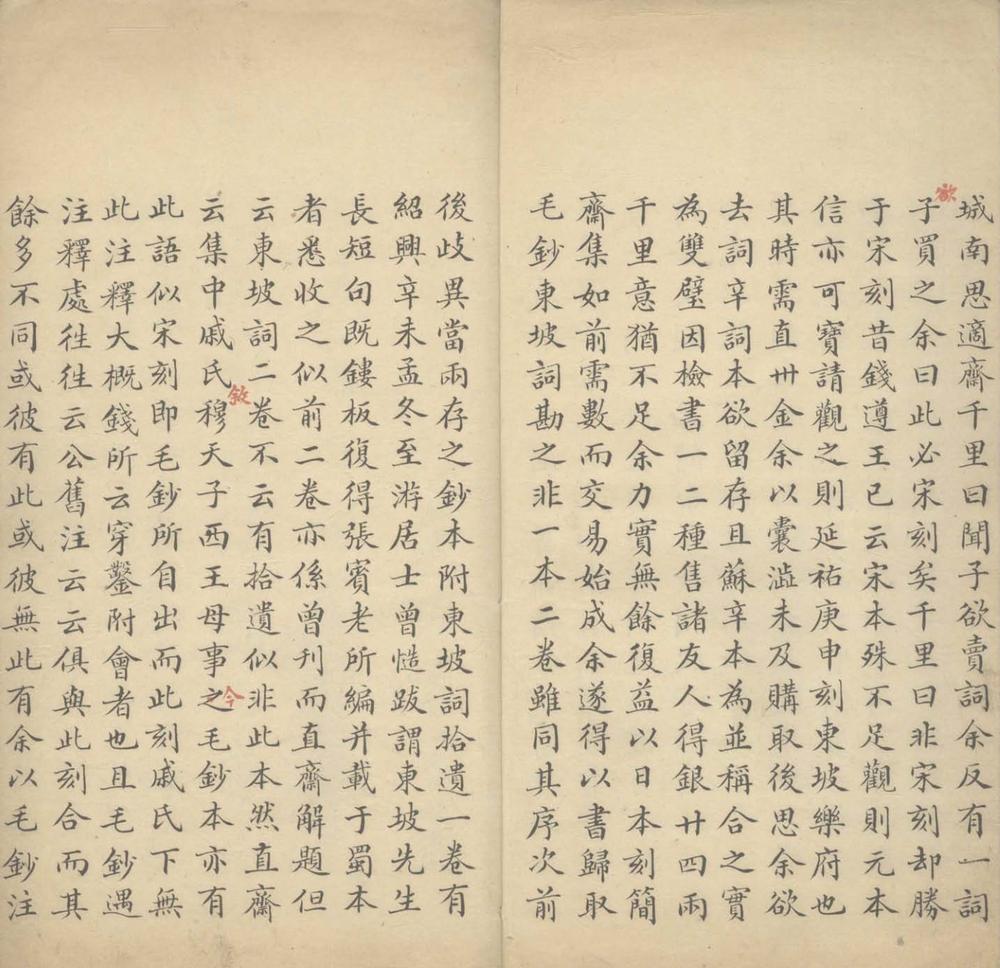 城南思適齋千里曰聞子欲賣詞余反有一詞
欲子買之余曰此必宋刻矣千里曰非宋刻却勝
于宋刻昔錢遵王已云宋本殊不足觀則元本
信亦可寶請觀之則延祐庚申刻東坡樂府也
其時需直卅金余以囊澁未及購取後思余欲
去詞辛詞本欲留存且蘇辛本為並稱合之實
為雙璧因檢書一二種售諸友人得銀廿四兩
千里意猶不足余力實無餘復益以日本刻簡
齋集如前需數而交易始成余遂得以書歸取
毛鈔東坡詞勘之非一本二卷雖同其序次前
後歧異當兩存之鈔本附東坡詞拾遺一卷有
紹興辛未孟冬至游居士曾慥跋謂東坡先生
長短句既鏤板復得張賓老所編并載于蜀本
者悉收之似前二卷亦係曾刊而直齋解題但
云東坡詞二卷不云有拾遺似非此本然直齋
云集中戚氏敘穆天子西王母事之今毛鈔本亦有
此語似宋刻即毛鈔所自出而此刻戚氏下無
此注釋大概錢所云穿鑿附會者也且毛鈔遇
注釋處往往云公舊注云云俱與此刻合而其
餘多不同或彼有此或彼無此有余以毛鈔注